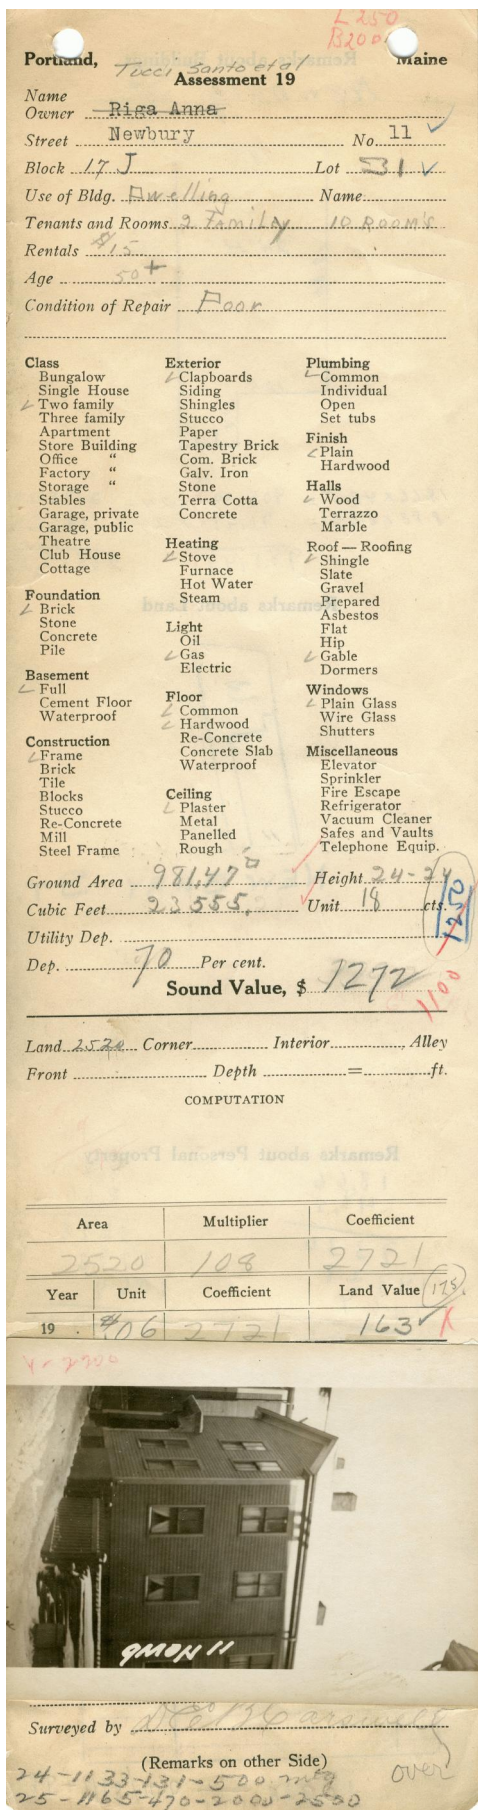 L 250
B 2000
Portland, Maine
Tucci Santo et al
Assessment 19
Name
Owner Riga Anna
Street Newbury No. 11 ✓
Block 17 J Lot 31 ✓
Use of Bldg. Dwelling Name
Tenants and Rooms 2 Family 10 Rooms
Rentals $15
Age 50+
Condition of Repair Poor
Class
Bungalow
Single House
✓ Two family
Three family
Apartment
Store Building
Office "
Factory "
Storage "
Stables
Garage, private
Garage, public
Theatre
Club House
Cottage
Foundation
✓ Brick
Stone
Concrete
Pile
Basement
✓ Full
Cement Floor
Waterproof
Construction
✓ Frame
Brick
Tile
Blocks
Stucco
Re-Concrete
Mill
Steel Frame
Exterior
✓ Clapboards
Siding
Shingles
Stucco
Paper
Tapestry Brick
Com. Brick
Galv. Iron
Stone
Terra Cotta
Concrete
Heating
✓ Stove
Furnace
Hot Water
Steam
Light
Oil
✓ Gas
Electric
Floor
✓ Common
✓ Hardwood
Re-Concrete
Concrete Slab
Waterproof
Ceiling
✓ Plaster
Metal
Panelled
Rough
Plumbing
✓ Common
Individual
Open
Set tubs
Finish
✓ Plain
Hardwood
Halls
✓ Wood
Terrazzo
Marble
Roof — Roofing
✓ Shingle
Slate
Gravel
Prepared
Asbestos
Flat
Hip
✓ Gable
Dormers
Windows
✓ Plain Glass
Wire Glass
Shutters
Miscellaneous
Elevator
Sprinkler
Fire Escape
Refrigerator
Vacuum Cleaner
Safes and Vaults
Telephone Equip.
Ground Area 981.47 □ Height 24-24
Cubic Feet 23555. Unit 18 cts.
1250
Utility Dep.
Dep. 70 Per cent.
Sound Value, $ 1272
1100
Land 2520 Corner Interior Alley
Front Depth = ft.
COMPUTATION
Area Multiplier Coefficient
2520 108 2721
Year Unit Coefficient Land Value 175
19 $.06 2721 163 ✓
2200
11 Newb
Surveyed by
(Remarks on other Side)
over
24-1133-131-500 mtg
25-1165-470-2000-2500